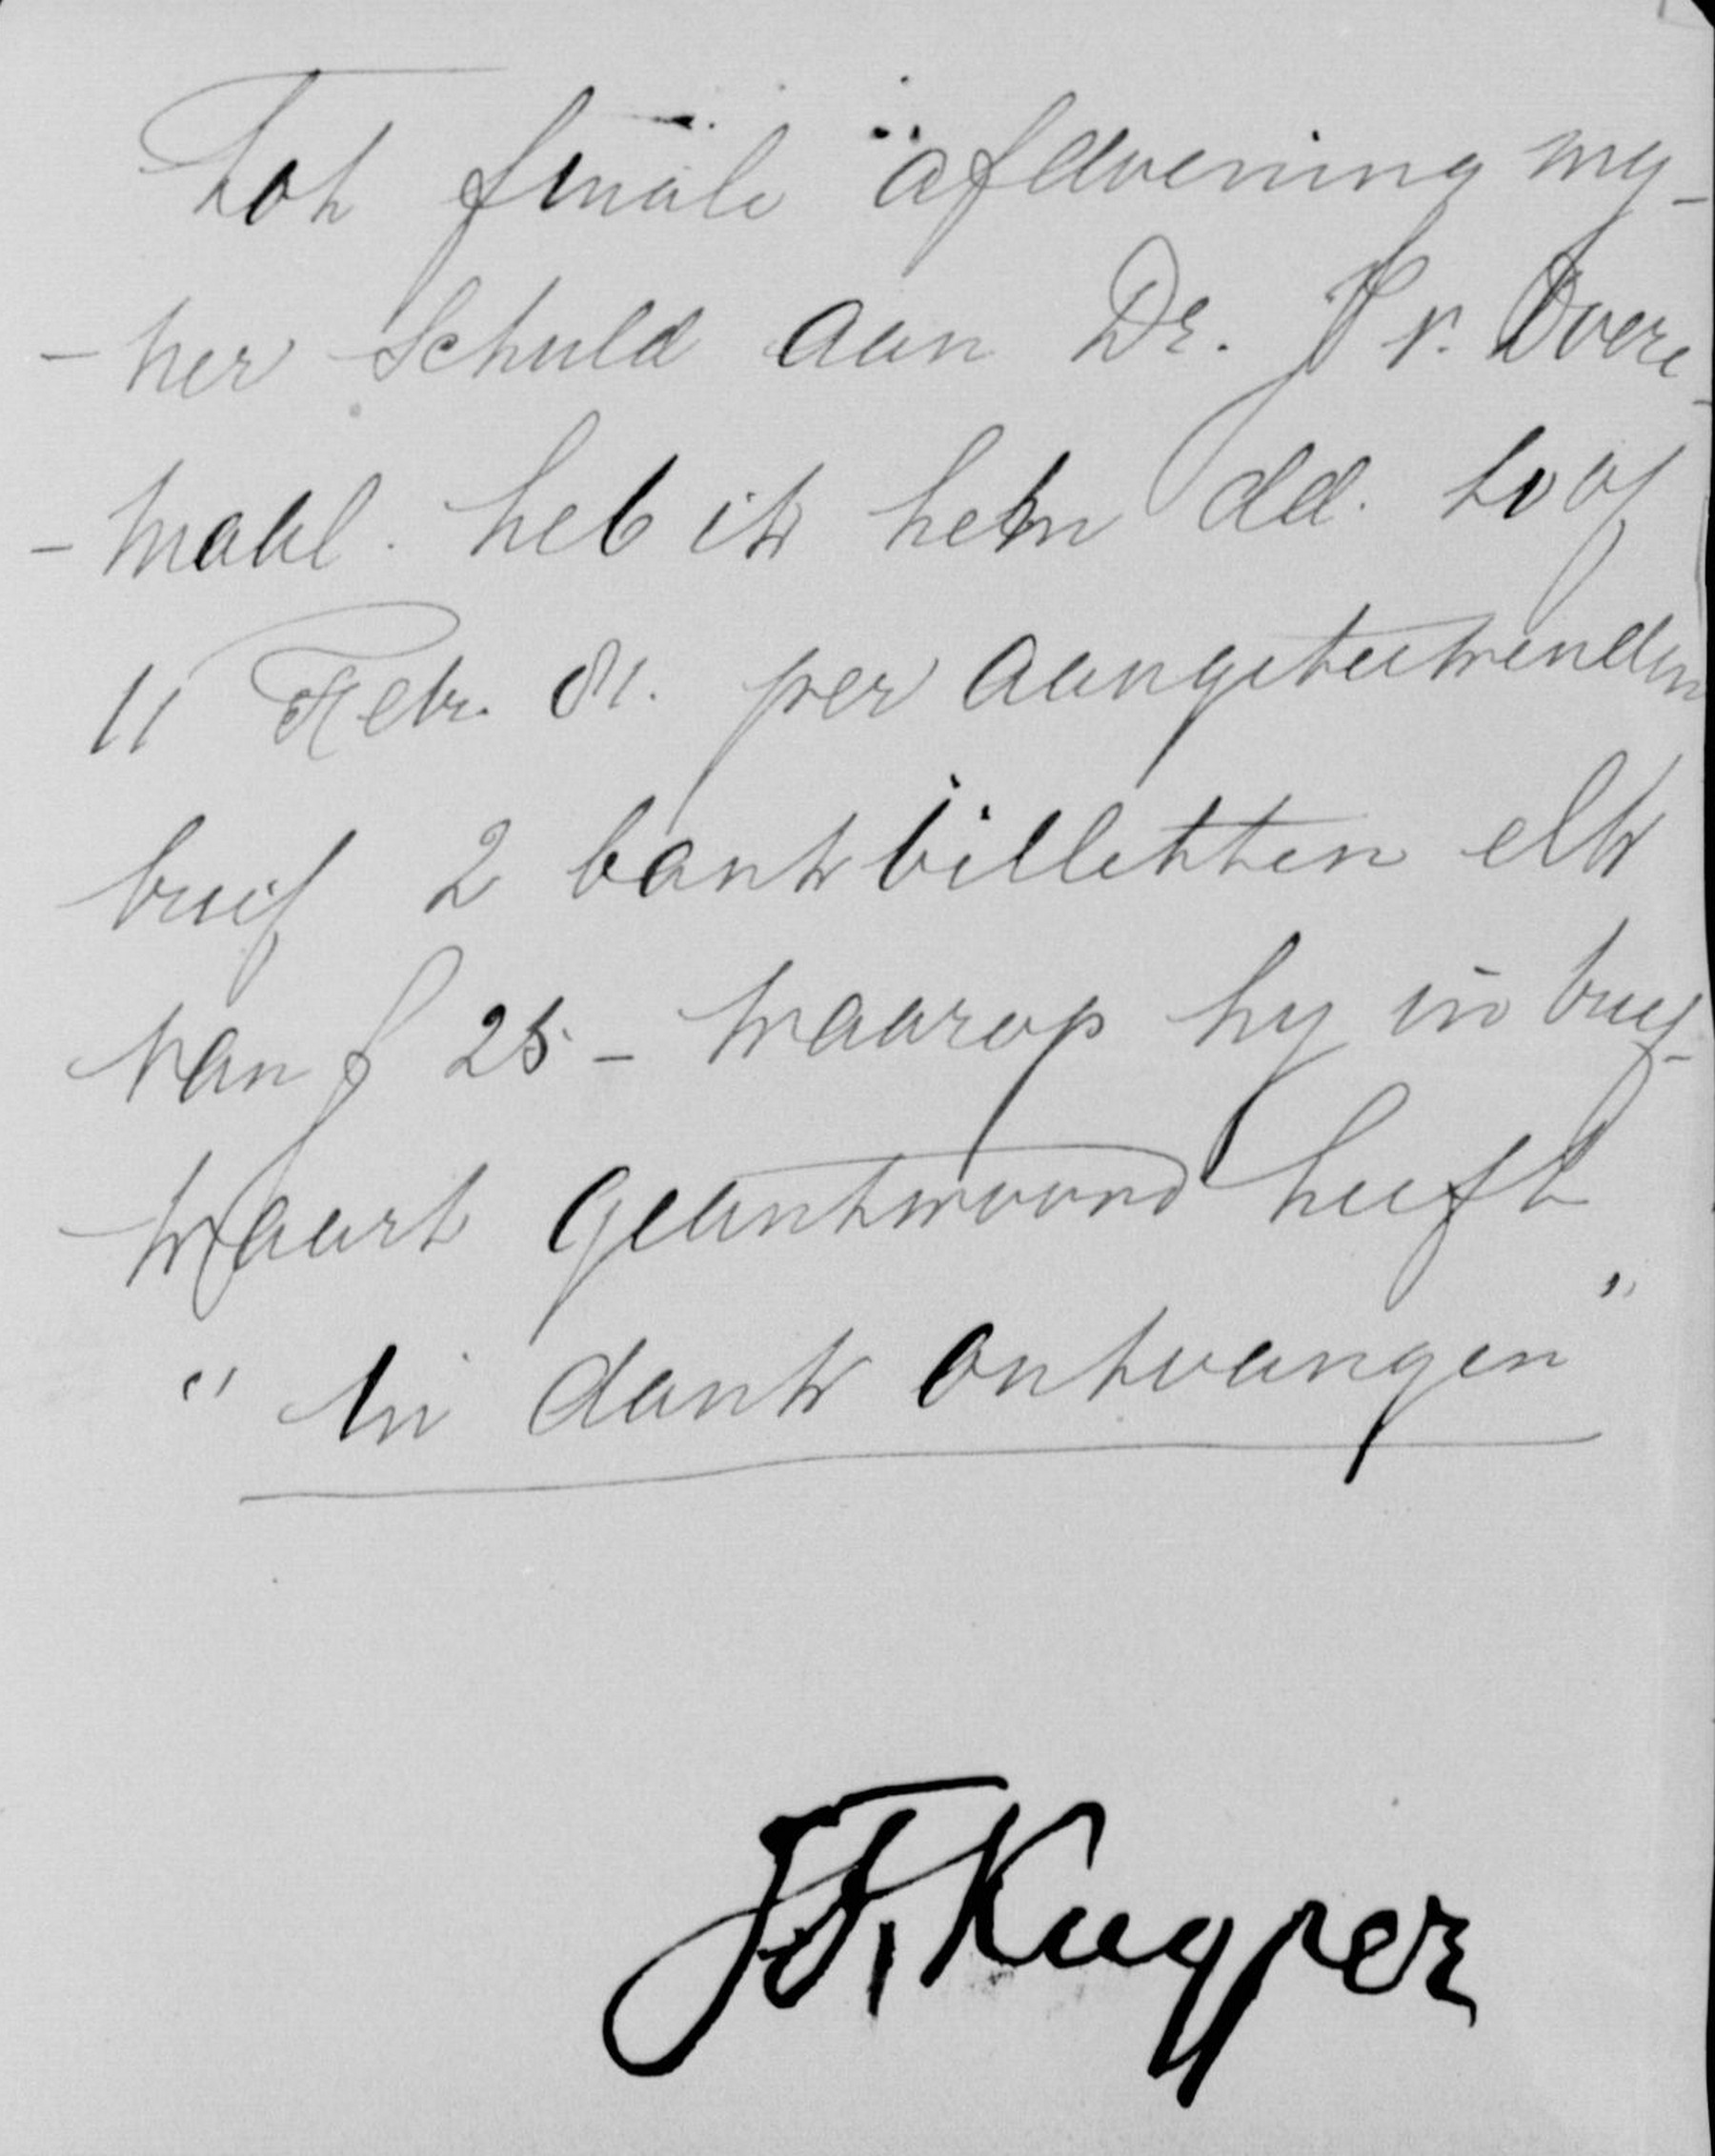 Tot finale afdoening my-
- ner Schuld aan Dr. J v. Overe
- maal. heb ik hem dd.
11 Febr. 81. per aangeteekenden
brief 2 bankbilletten elk
van f 25 - waarop hy in brief-
kaart geantwoord heeft
" In dank ontvangen "
Kuyper